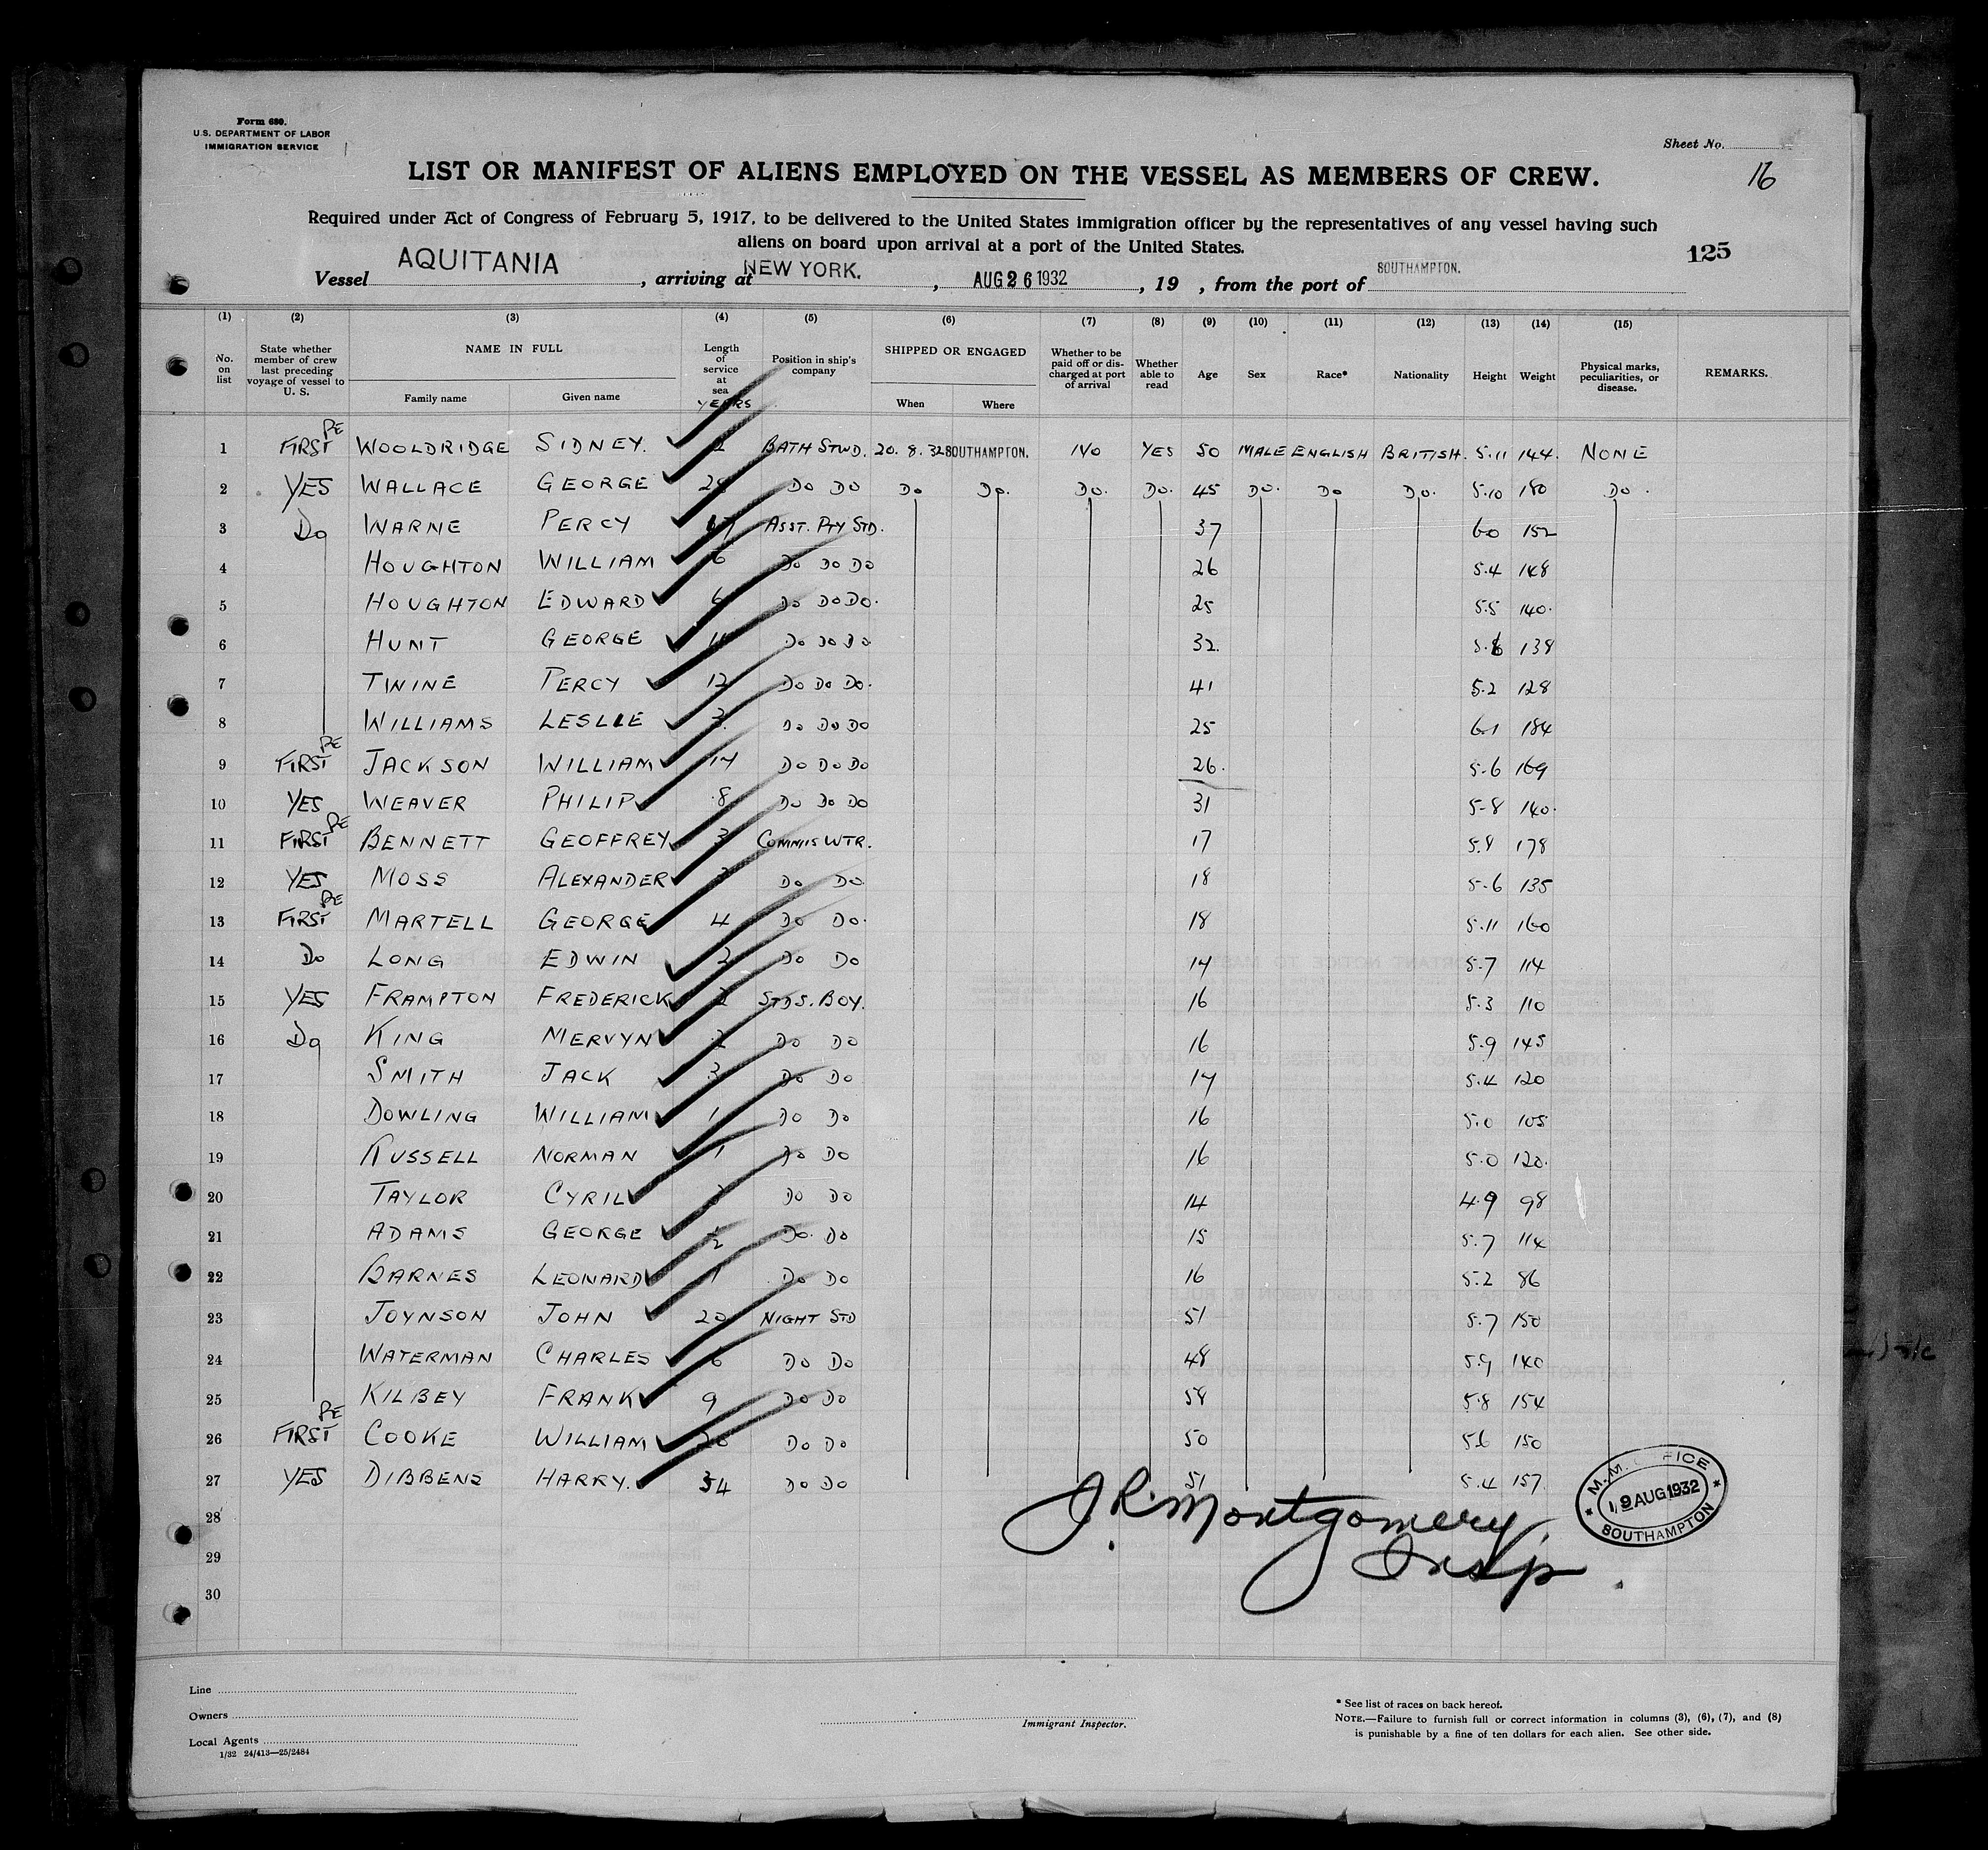 Form 680.
U.S. DEPARTMENT OF LABOR
IMMIGRATION SERVICE
Sheet No.
16
LIST OR MANIFEST OF ALIENS EMPLOYED ON THE VESSEL AS MEMBERS OF CREW.
Required under Act of Congress of February 5, 1917, to be delivered to the United States immigration officer by the representatives of any vessel having such
aliens on board upon arrival at a port of the United States.
125
Vessel AQUITANIA, arriving at NEW YORK., AUG 26 1932, 19 , from the port of SOUTHAMPTON.
(1) (2) (3) (4) (5) (6) (7) (8) (9) (10) (11) (12) (13) (14) (15)
No. on list State whether member of crew last preceding voyage of vessel to U. S. NAME IN FULL Family name Given name Length of service at sea YEARS Position in ship's company SHIPPED OR ENGAGED When Where Whether to be paid off or discharged at port of arrival Whether able to read Age Sex Race* Nationality Height Weight Physical marks, peculiarities, or disease. REMARKS.
1 FIRST RE WOOLDRIDGE SIDNEY. BATH STWD. 20. 8. 32 SOUTHAMPTON. NO YES 50 MALE ENGLISH BRITISH. 5.11 144. NONE
2 YES WALLACE GEORGE DO DO DO DO. DO. DO. 45 DO. DO DO. 5.10 180 DO.
3 DO WARNE PERCY ASST. PTY STD. 37 6-0 152
4 HOUGHTON WILLIAM 6 DO DO DO 26 5.4 148
5 HOUGHTON EDWARD 6 DO DO DO. 25 5.5 140.
6 HUNT GEORGE DO DO DO 32. 138
7 TWINE PERCY 12 DO DO DO. 41 5.2 128
8 WILLIAMS LESLIE 3 DO DO DO 25 6-1 184
9 FIRST RE JACKSON WILLIAM 14 DO DO DO 26. 5-6 169
10 YES WEAVER PHILIP 8 DO DO DO 31 5-8 140.
11 FIRST RE BENNETT GEOFFREY 3 COMMIS WTR. 17 5.8 178
12 YES MOSS ALEXANDER DO DO 18 5-6 135
13 FIRST RE MARTELL GEORGE 4 DO DO. 18 5.11 160
14 DO LONG EDWIN DO DO 5.7 114
15 YES FRAMPTON FREDERICK STDS. BOY. 16 5.3 110
16 DO KING MERVYN DO DO 16 5.9 145
17 SMITH JACK 3 DO DO 5.4 120
18 DOWLING WILLIAM 1 DO DO 16 5.0 105
19 RUSSELL NORMAN 1 DO DO 16 5.0 120.
20 TAYLOR CYRIL DO DO 14 4.9 98
21 ADAMS GEORGE ½ DO. DO 15 5.7 114
22 BARNES LEONARD 1 DO DO 16 5.2 86
23 JOYNSON JOHN 20 NIGHT STD 51 5.7 150
24 WATERMAN CHARLES 6 DO DO 48 5.9 140
25 KILBEY FRANK 9 DO DO 58 5.8 154
26 FIRST RE COOKE WILLIAM 20 DO DO 50 5.6 150
27 YES DIBBENS HARRY. 34 DO DO 51 5.4 157.
28
29
30
J.R. Montgomery,
Insp.
M.M. OFFICE
19 AUG 1932
SOUTHAMPTON
Line
Owners
Local Agents
1/32 24/413—25/2484
Immigrant Inspector.
* See list of races on back hereof.
NOTE.—Failure to furnish full or correct information in columns (3), (6), (7), and (8)
is punishable by a fine of ten dollars for each alien. See other side.